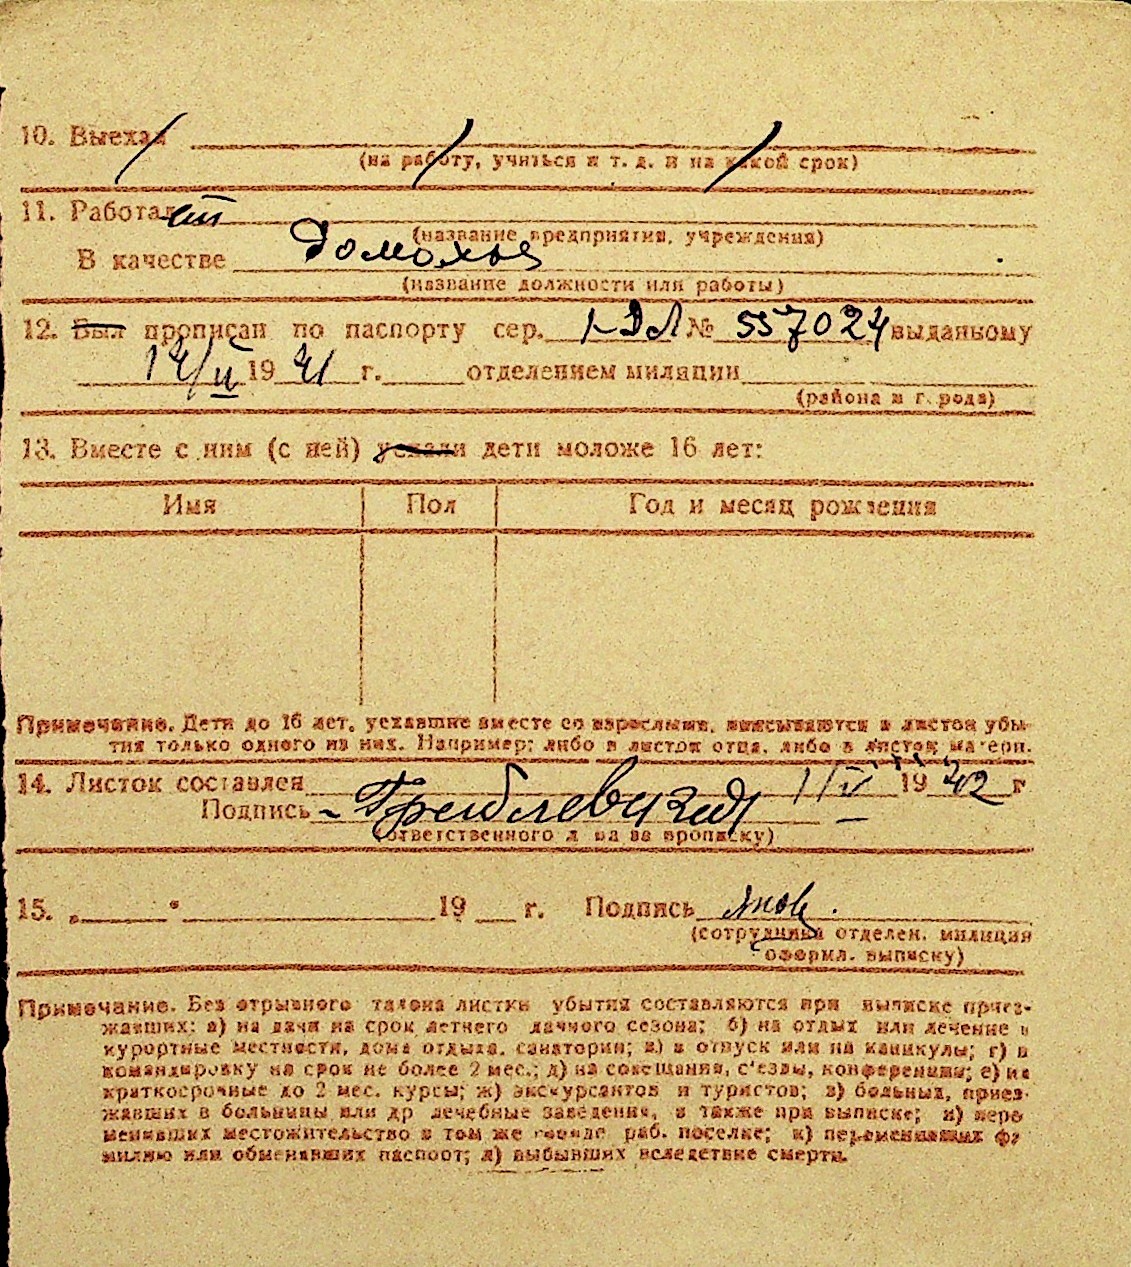 10. Выехал
(на работу, учиться и т. д. и на какой срок)
11. Работает
(название предприятия, учреждения)
В качестве Домохоз
(название должности или работы)
12. Был прописан по паспорту сер. 1-ДЛ № 557024 выданному
14/II 1941 г. отделением милиции
(района и города)
13. Вместе с ним (с ней) уехали дети моложе 16 лет:
Имя Пол Год и месяц рождения
Примечание. Дети до 16 лет, уехавшие вместе со взрослыми, вписываются в листок убы-
тия только одного из них. Например: либо в листок отца, либо в листок матери.
14. Листок составлен 1/IV 1942 г
Подпись
(ответственного лица за прописку)
15. „ " 19 г. Подпись
(сотрудника отделен. милиции
оформл. выписку)
Примечание. Без отрывного талона листки убытия составляются при выписке приез-
жавших: а) на дачи на срок летнего дачного сезона; б) на отдых или лечение в
курортные местности, дома отдыха, санатории; в) в отпуск или на каникулы; г) в
командировку на срок не более 2 мес.; д) на совещания, с'езды, конференции; е) на
краткосрочные до 2 мес. курсы; ж) экскурсантов и туристов; з) больных, приез-
жавших в больницы или др лечебные заведения, а также при выписке; и) пере
менивших местожительство в том же городе раб. поселке; к) переменивших фа
милию или обменявших паспорт; л) выбывших вследствие смерти.